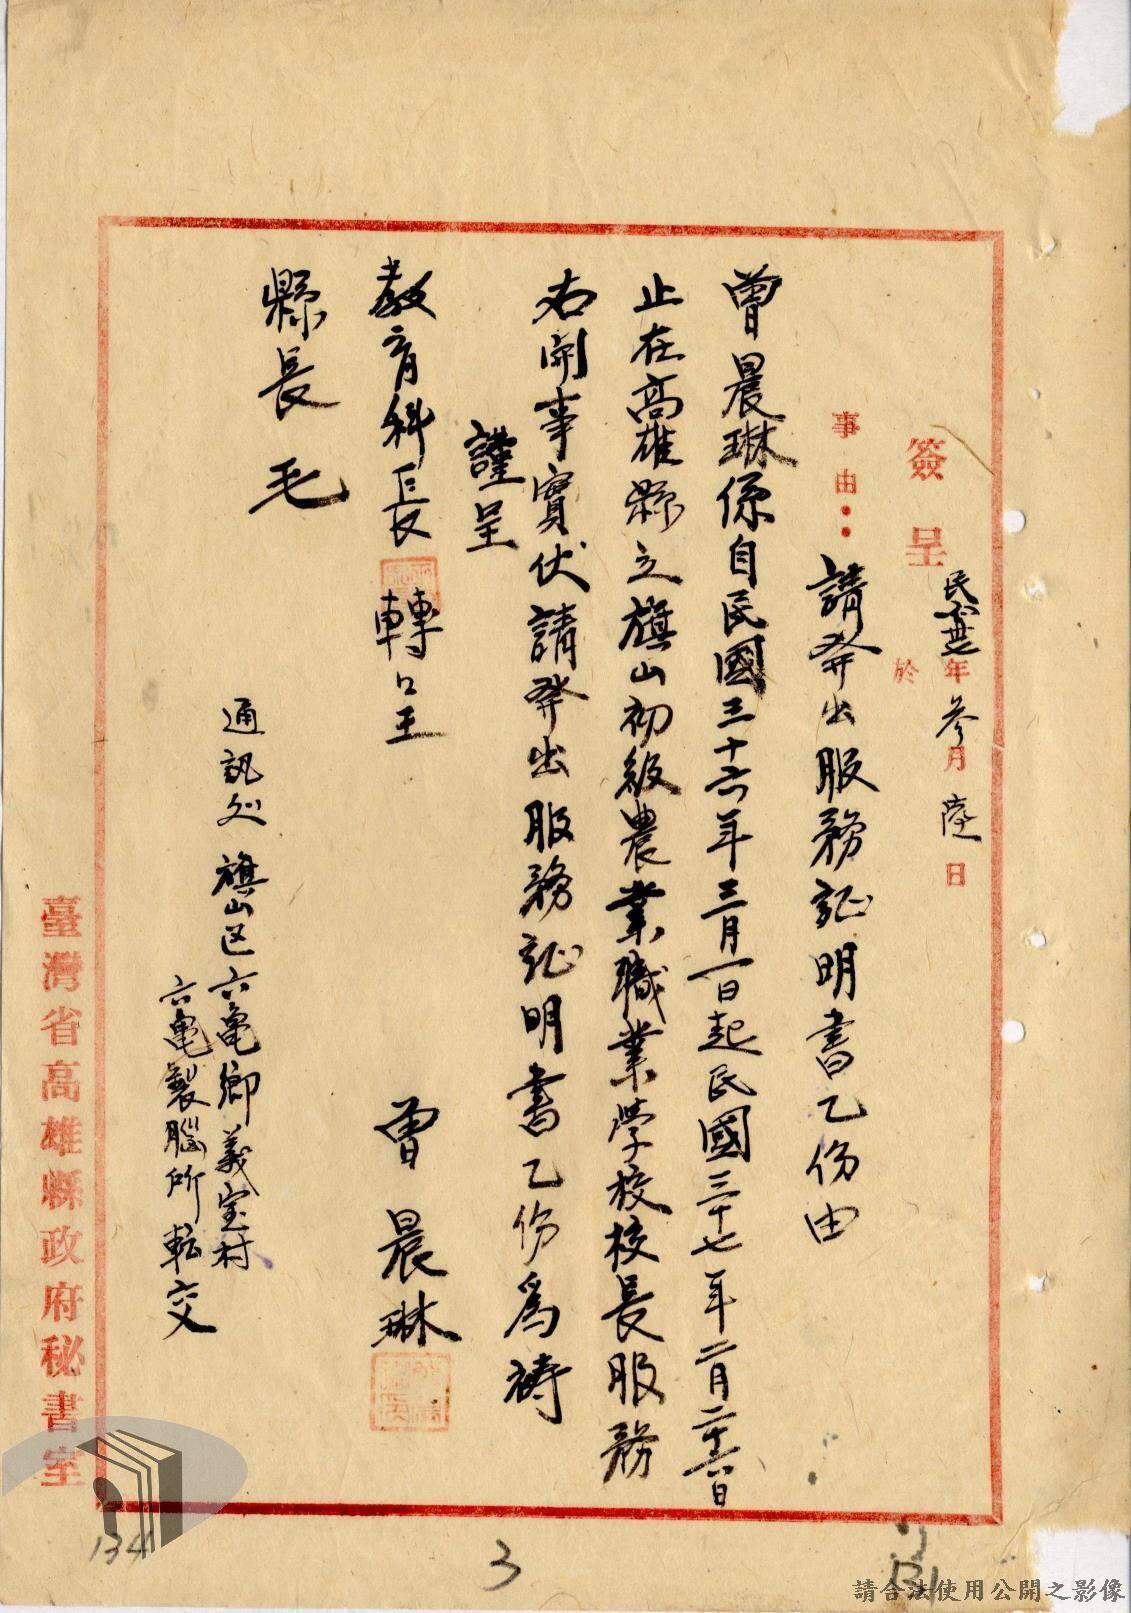 簽呈 民國卅七年參月陸日
於
事由：請發出服務証明書乙份由
曾晨琳係自民國三十六年三月一日起民國三十七年二月二十六日
止在高雄縣立旗山初級農業職業学校校長服務
右開事實伏請發出服務証明書乙份為禱
謹呈
教育科長 轉呈
縣長 毛
曾晨琳
通訊処 旗山区六亀鄉義宝村
六亀製腦所転交
臺灣省高雄縣政府秘書室
134
3
131
請合法使用公開之影像